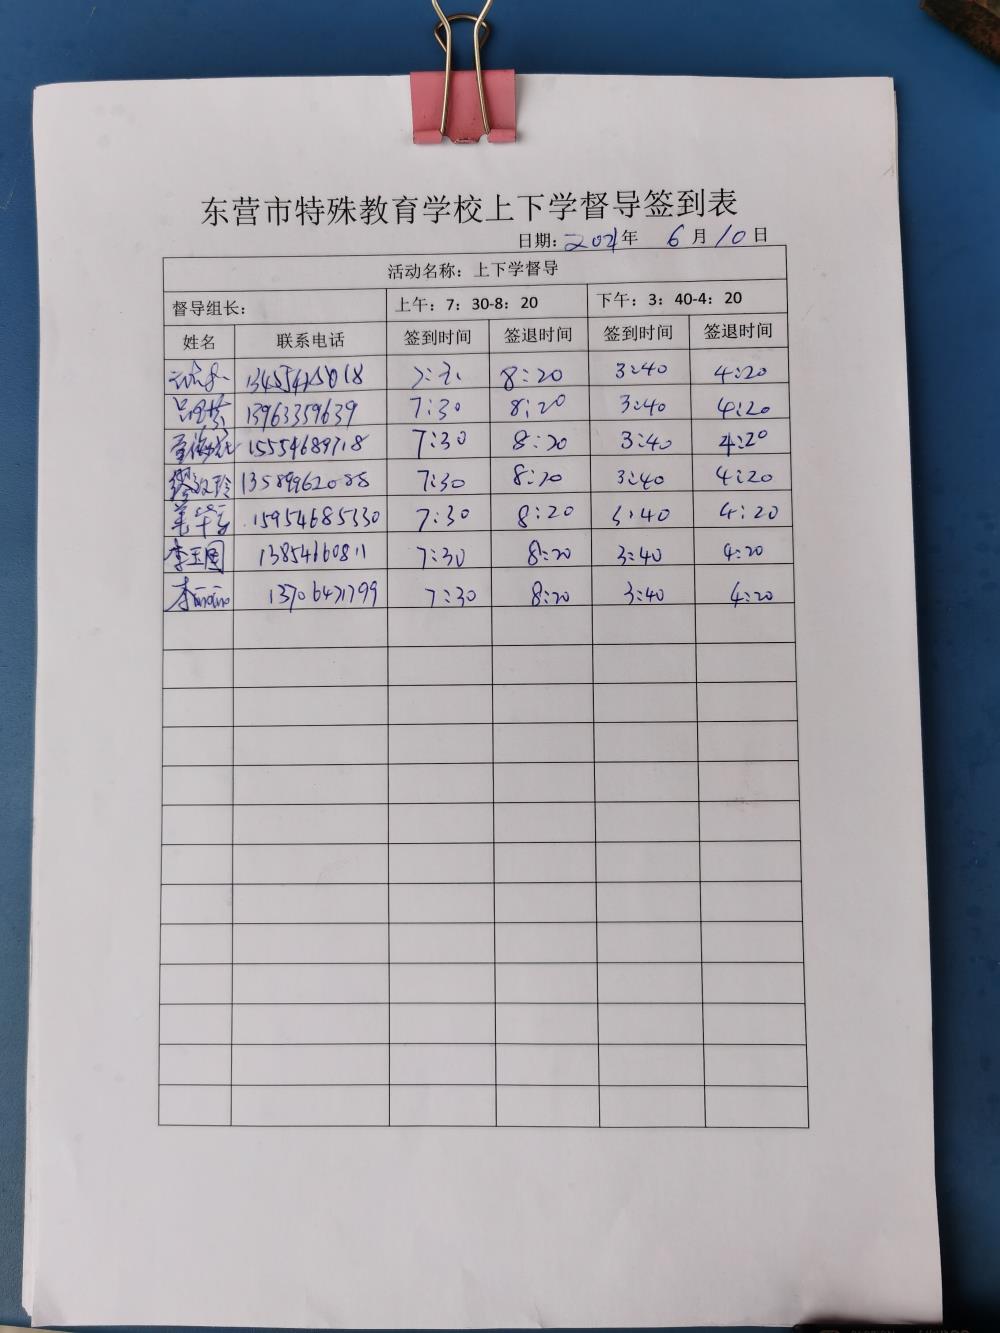 东营市特殊教育学校上下学督导签到表
日期: 2021年 6月10日
活动名称: 上下学督导
督导组长: 上午: 7: 30-8: 20 下午: 3: 40-4: 20
姓名 联系电话 签到时间 签退时间 签到时间 签退时间
8:20 3:40 4:20
13963359639 7:30 8:20 3:40 4:20
15554689718 7:30 8:20 3:40 4:20
13589962088 7:30 8:20 3:40 4:20
15954685330 7:30 8:20 3:40 4:20
李玉国 13854660811 7:30 8:20 3:40 4:20
李 7:30 8:20 3:40 4:20